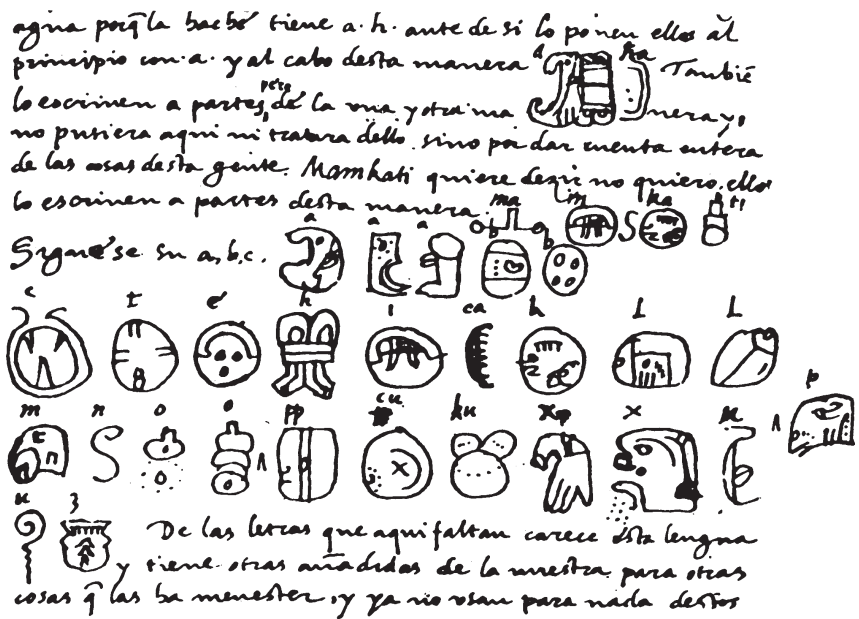 agua porq̃ la haché tiene a.h. ante de si lo ponen ellos al
principio con .a. y al cabo desta manera a ha Tambiẽ
lo escriuen a partes, pero de la vna y otra ma nera y,
no pusiera aqui ni tratara dello sino por dar cuenta entera
de las cosas desta gente. Mamkati quiere dezir no quiero, ellos
lo escriuen a partes desta manera: ma i n ka ti
Syguese su a, b, c. a a a b b
c t e h i ca k l l
m n o o pp cu ku x x u p
u z De las letras que aqui faltan carece esta lengua
y tiene otras añadidas de la nuestra para otras
cosas q̃ las ha menester, y ya no usan para nada destos